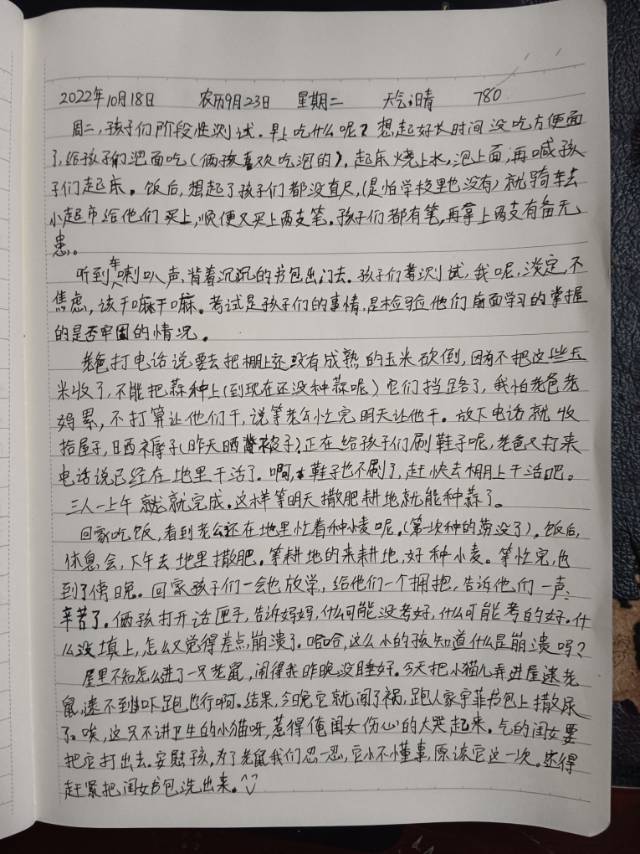 2022年10月18日 农历9月23日 星期二 天气:晴 780
周二,孩子们阶段性测试。早上吃什么呢?想起好长时间没吃方便面
了,给孩子们泡面吃(俩孩喜欢吃泡的),起床烧上水,泡上面,再喊孩
子们起床。饭后,想起了孩子们都没直尺,(是怕学校里也没有)就骑车去
小超市给他们买上,顺便又买上两支笔。孩子们都有笔,再拿上两支有备无
患。
听到车喇叭声,背着沉沉的书包出门去。孩子们着测试,我呢,淡定,不
焦虑,该干嘛干嘛。考试是孩子们的事情,是检验他们后面学习的掌握
的是否牢固的情况。
老爸打电话说要去把棚上还没有成熟的玉米砍倒,因为不把这些玉
米收了,不能把蒜种上(到现在还没种蒜呢)它们挡路了,我怕老爸老
妈累,不打算让他们干,说等老公忙完明天让他干。放下电话就收
拾屋子,晒褥子(昨天晒被子)正在给孩子们刷鞋子呢,老爸又打来
电话说已经在地里干活了。啊,鞋子也不刷了,赶快去棚上干活吧。
三人一上午就完成。这样等明天撒肥耕地就能种蒜了。
回家吃饭,看到老公还在地里忙着种小麦呢。(第一次种的涝没了)。饭后,
休息会,下午去地里撒肥。等耕地的来耕地,好种小麦。等忙完,也
到了傍晚。回家孩子们一会也放学,给他们一个拥抱,告诉他们一声:
辛苦了。俩孩打开话匣子,告诉妈妈,什么可能没考好,什么可能考的好。什
么没填上,怎么又觉得差点崩溃了。哈哈,这么小的孩知道什么是崩溃吗?
屋里不知怎么进了一只老鼠,闹得我昨晚没睡好。今天把小猫儿弄进屋逮老
鼠,逮不到吓跑也行啊。结果,今晚它就闯了祸,跑人家宇菲书包上撒尿
了。唉,这只不讲卫生的小猫呀,惹得俺闺女伤心的大哭起来。气的闺女要
把它打出去。安慰孩,为了老鼠我们忍一忍,它小不懂事,原谅它这一次。还得
赶紧把闺女书包洗出来。^^